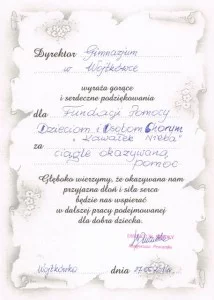 Dyrektor Gimnazjum
w Wojtkówce
wyraża gorące
i serdeczne podziękowania
dla Fundacji Pomocy
Dzieciom i Osobom Chorym
"Kawałek Nieba"
za ciągle okazywaną
pomoc
Głęboko wierzymy, że okazywana nam
przyjazna dłoń i siła serca
będzie nas wspierać
w dalszej pracy podejmowanej
dla dobra dziecka.
Wojtkówka dnia